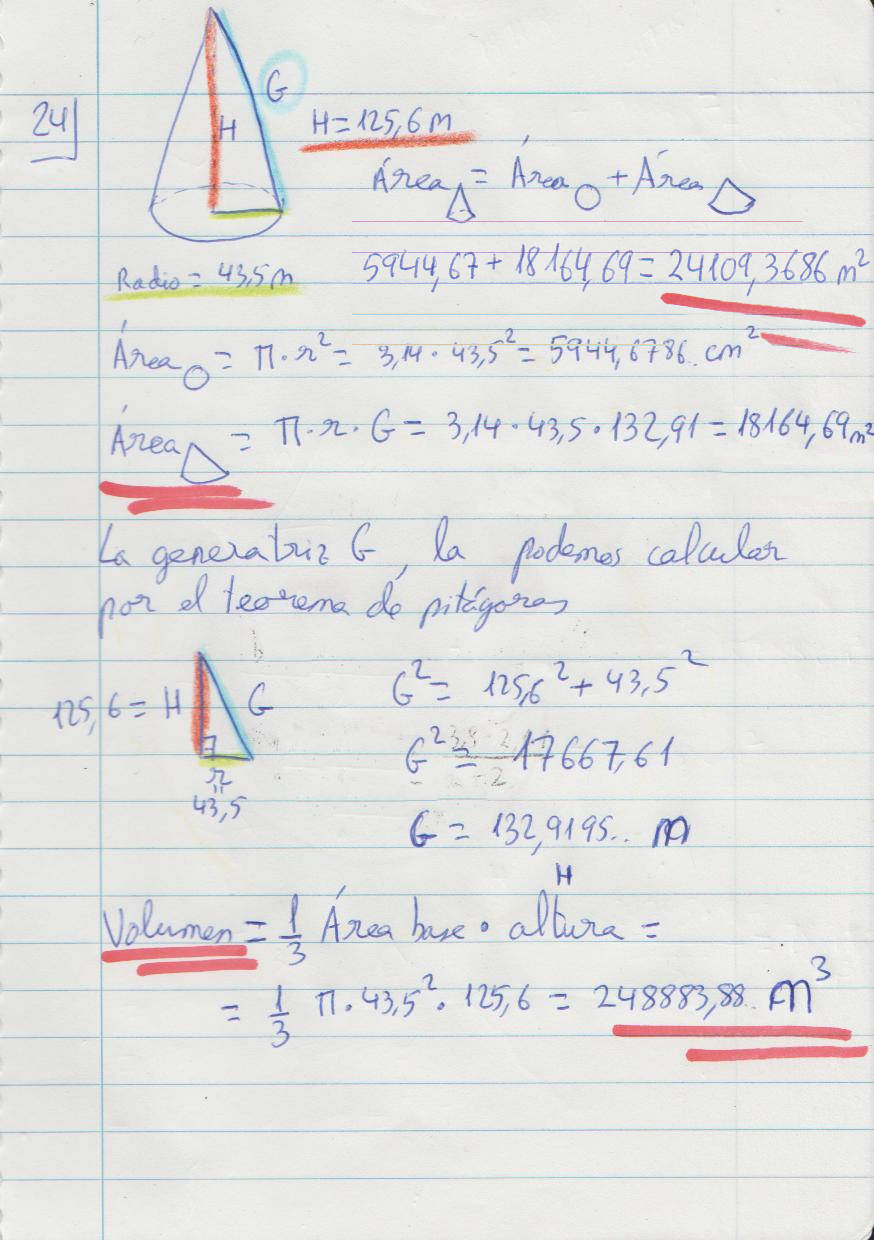 24
G
H
H = 125,6 m
Área = Área + Área
Radio = 43,5 m
5944,67 + 18164,69 = 24109,3686 m²
Área = π · r² = 3,14 · 43,5² = 5944,6786.. cm²
Área = π · r · G = 3,14 · 43,5 · 132,91 = 18164,69 m²
La generatriz G, la podemos calcular
por el teorema de pitágoras
125,6 = H
G
r
=
43,5
G² = 125,6² + 43,5²
G² = 17667,61
G = 132,9195.. m
H
Volumen = 1/3 Área base · altura =
= 1/3 π · 43,5² · 125,6 = 248883,88.. m³